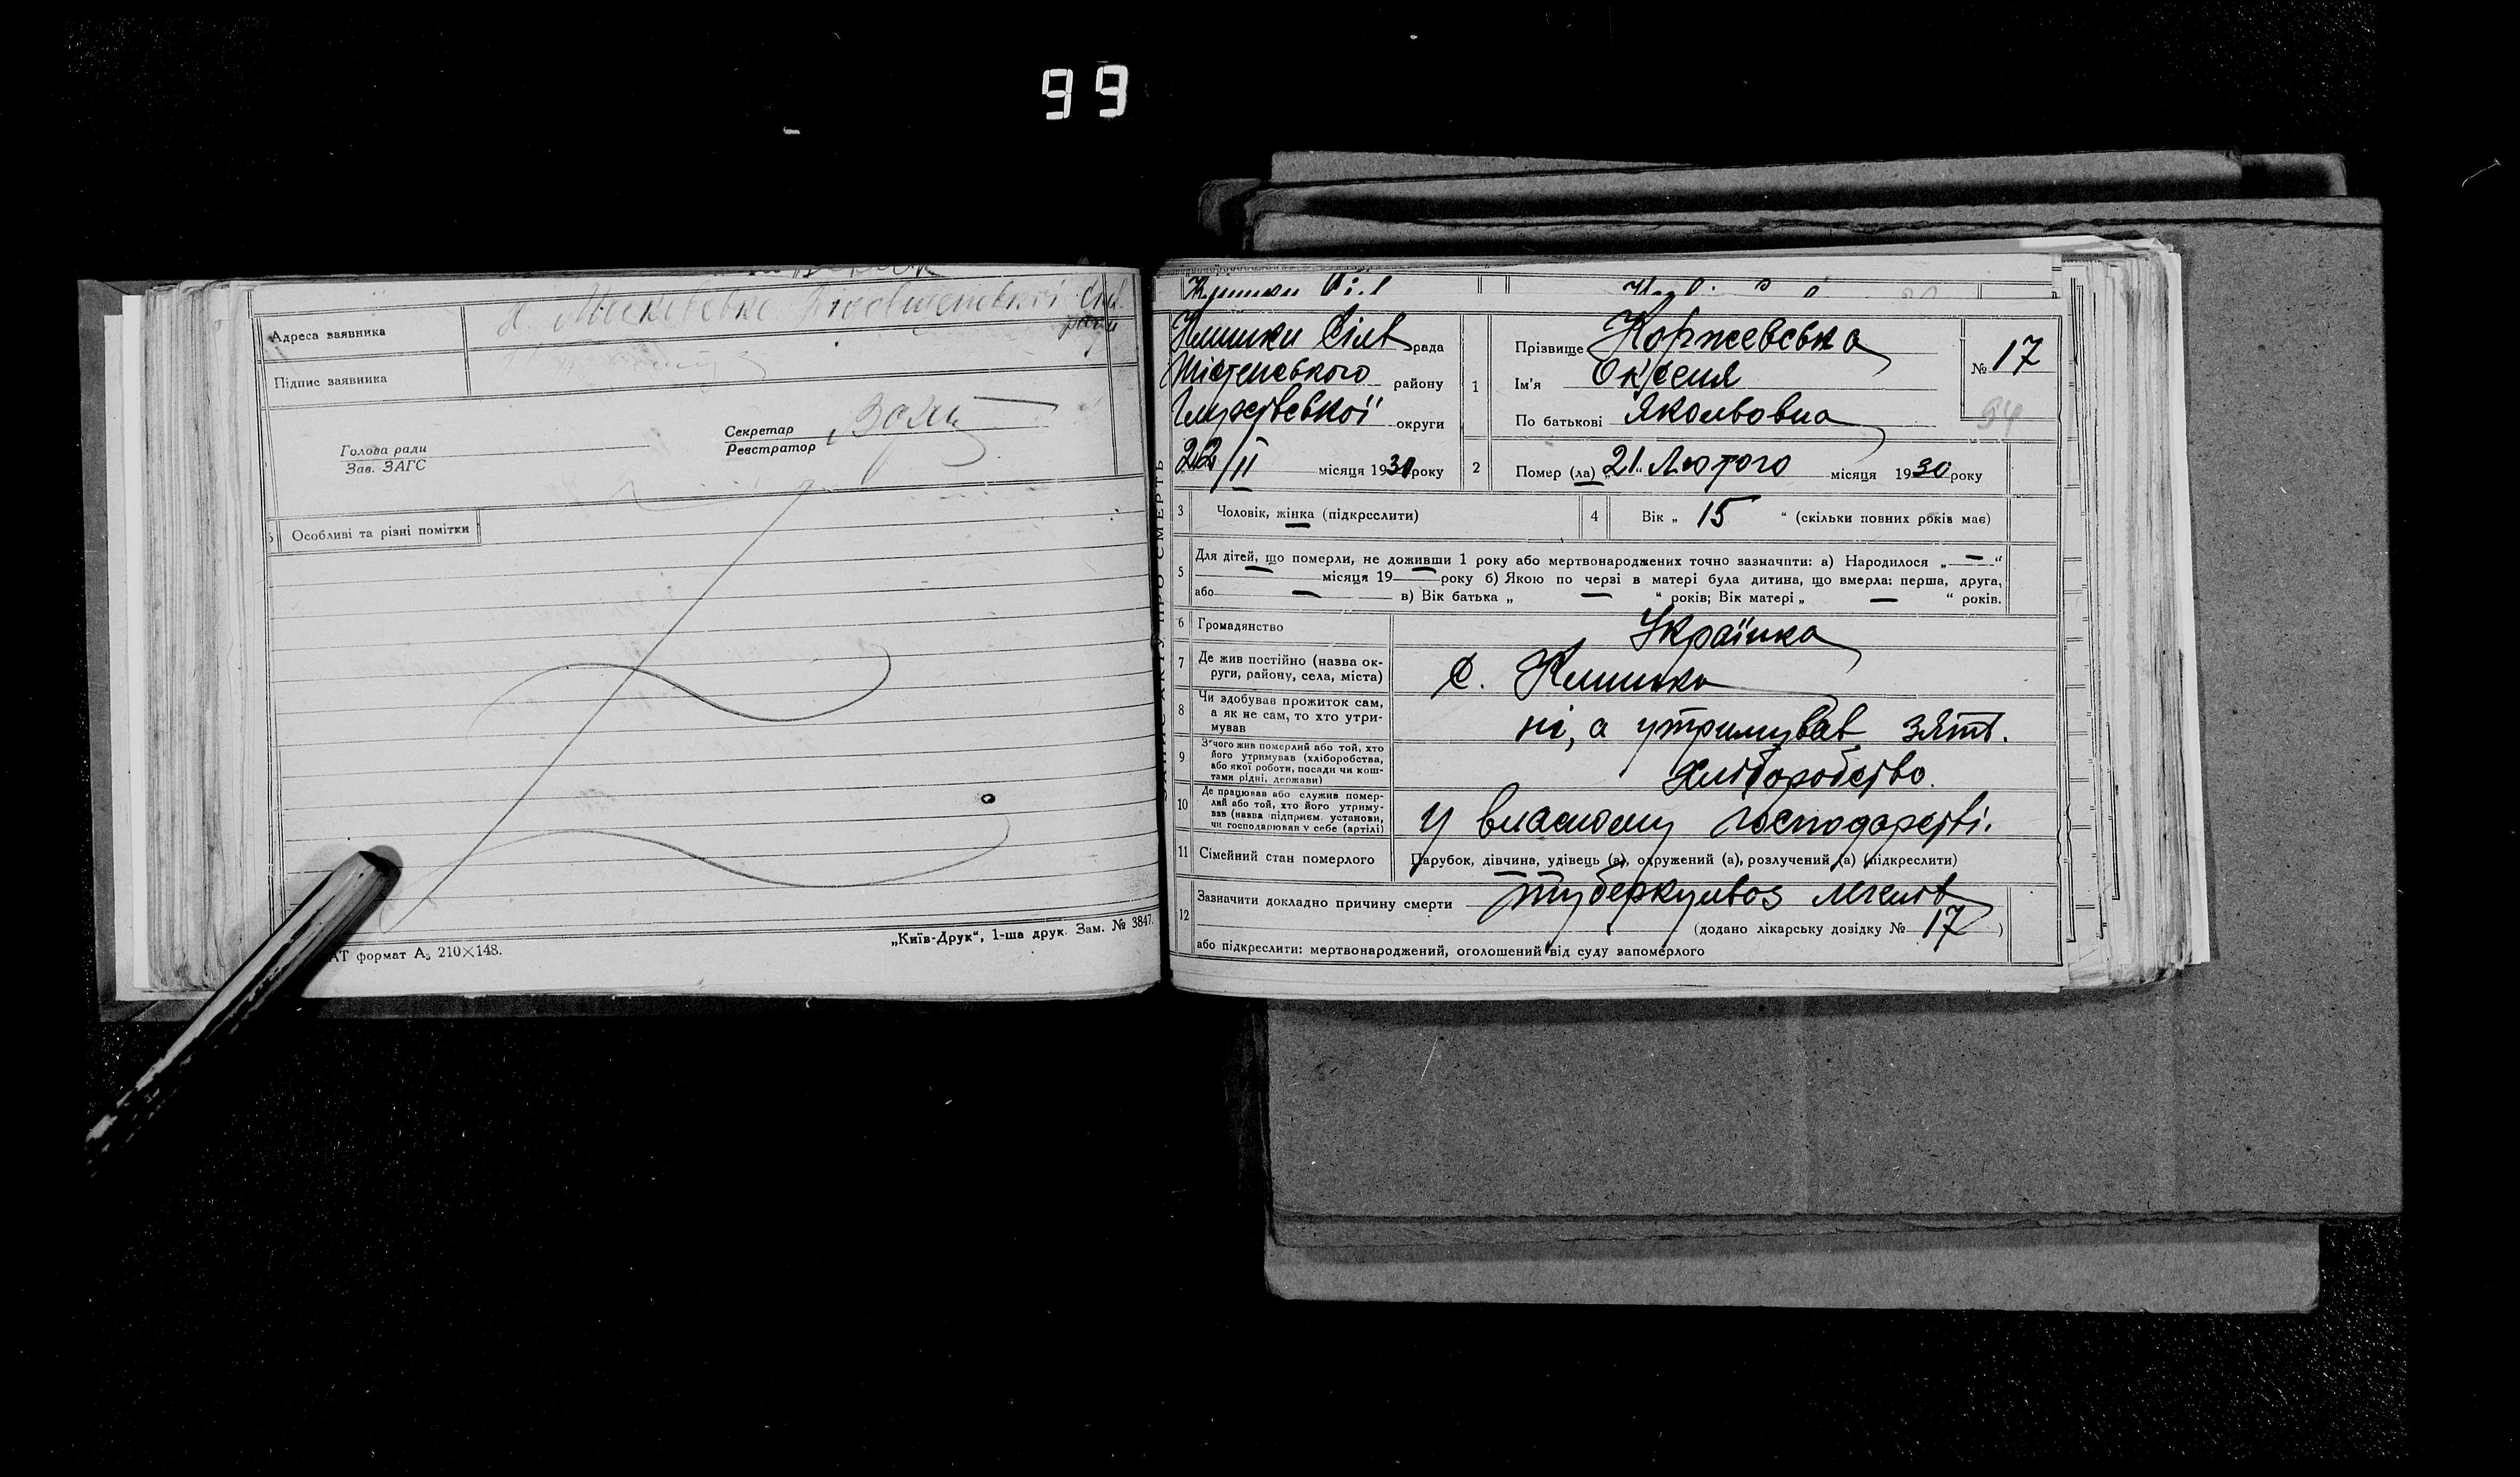 99
Адреса заявника
Сіл.
ради
Підпис заявника
Секретар
Реєстратор
Голова ради
Зав. ЗАГС
Особливі та різні помітки
АТ формат А₅ 210×148.
„Київ-Друк“, 1-ша друк. Зам. № 3847.
Клишки Сіль рада
району
округи
22/II місяця 1930 року
1
Прізвище Коржевська
Ім'я Оксеня
По батькові Яковльвовна
№ 17
94
2
Помер (ла) „21“ Лютого місяця 1930 року
3
Чоловік, жінка (підкреслити)
4
Вік „ 15 “ (скільки повних років має)
5
Для дітей, що померли, не доживши 1 року або мертвонароджених точно зазначити: а) Народилося „ — “
місяця 19 — року б) Якою по черзі в матері була дитина, що вмерла: перша, друга,
або — в) Вік батька „ — “ років; Вік матері „ — “ років.
6
Громадянство
Українка
7
Де жив постійно (назва ок-
руги, району, села, міста)
с. Клишки
8
Чи здобував прожиток сам,
а як не сам, то хто утри-
мував
ні, а утримував зять.
9
З чого жив померлий або той, хто
його утримував (хліборобства,
або якої роботи, посади чи кош-
тами рідні, держави)
Хліборобство.
10
Де працював або служив помер-
лий або той, хто його утриму-
вав (назва підприєм. установи,
чи господарював у себе (артілі)
У власному господарстві.
11
Сімейний стан померлого
Парубок, дівчина, удівець (а), одружений (а), розлучений (а) (підкреслити)
12
Зазначити докладно причину смерти туберкульоз легень
(додано лікарську довідку № 17 )
або підкреслити: мертвонароджений, оголошений від суду запомерлого